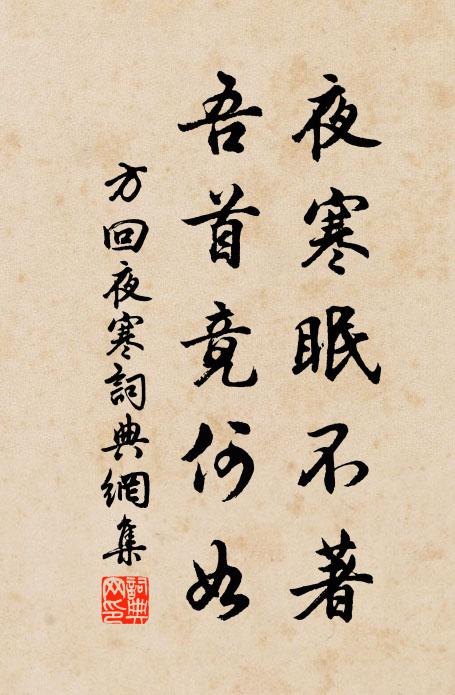 夜寒眠不著
吾首竟何如
方回夜寒詞典網集
詞典網印